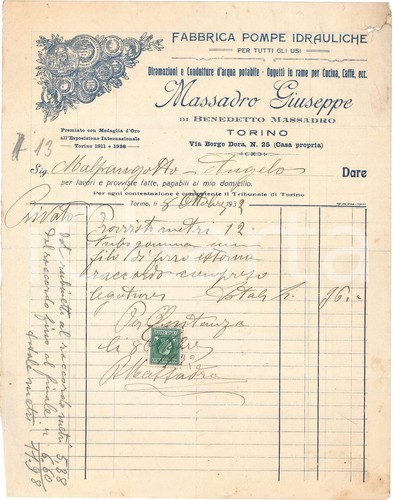 FABBRICA POMPE IDRAULICHE
PER TUTTI GLI USI
Diramazioni e Condutture d'acqua potabile - Oggetti in rame per Cucina, Caffè, ecc.
Massadro Giuseppe
DI BENEDETTO MASSADRO
TORINO
Via Borgo Dora, N. 25 (Casa propria)
Premiato con Medaglia d'Oro
all'Esposizione Internazionale
Torino 1911 e 1928
# 13
Sig. Malpangotto Angelo Dare
per lavori e provviste fatte, pagabili al mio domicilio.
Per ogni contestazione è competente il Tribunale di Torino
Torino, li 8 Ottobre 1932
Privato
Provvisti metri 12
tubo gomma con
filo di ferro esterno
raccordo compreso
legature Totale L. 96.-
Per Quitanza
li 8
Massadro
dal rubinetto al raccordo metri 5,38
dal raccordo fino al finale m 6,60
totale metri 11,98